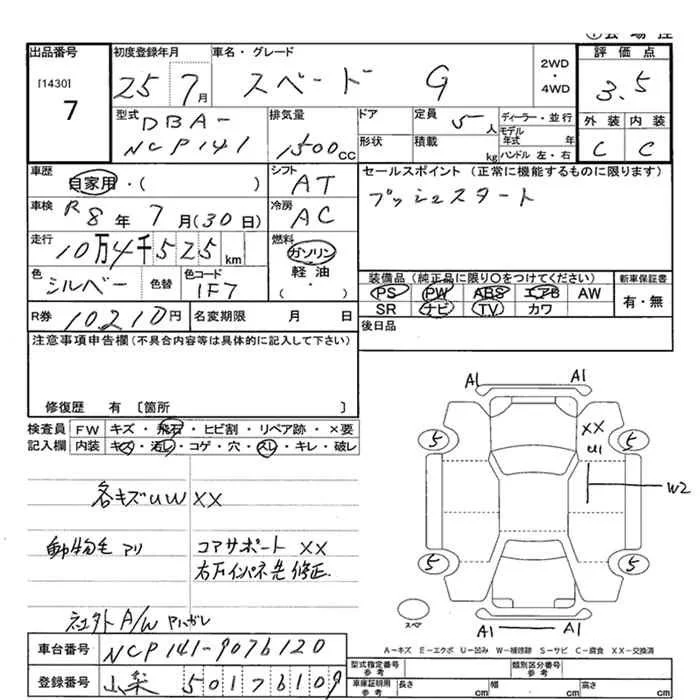 出品番号
[1430]
7
初度登録年月
25 7月
車名・グレード
スペード G
2WD
・
4WD
評価点
3.5
型式
DBA-
NCP141
排気量
1500CC
ドア
形状
定員
5人
積載
kg
ディーラー・並行
モデル年式 年
ハンドル 左・右
外装 内装
C C
車歴
自家用・( )
シフト
AT
セールスポイント (正常に機能するものに限ります)
プッシュスタート
車検
R8年7月(30日)
冷房
AC
走行
10万4千525km
燃料
ガソリン
軽油
( ・ )
色
シルバー
色替
色コード
1F7
装備品 (純正品に限り○をつけてください)
PS PW ABS エアB AW
SR ナビ TV カワ
新車保証書
有・無
R券
10210円
名変期限 月 日
後日品
注意事項申告欄(不具合内容等は具体的に記入して下さい)
修復歴 有 〔箇所 〕
検査員
記入欄
FW キズ・飛石・ヒビ割・リペア跡・×要
内装 キズ・汚レ・コゲ・穴・スレ・キレ・破レ
各キズUW XX
動物毛アリ
コアサポート XX
右フインパネ先修正.
社外A/W アルハガレ
車台番号
NCP141-9076120
登録番号
山梨 501 76109
A1 A1
5 XX 5
U1
W2
5 5
スペア
A1 A1
A-キズ E-エクボ U-凹み W-補修跡 S-サビ C-腐食 XX-交換済
型式指定番号
参考
類別区分番号
参考
車庫証明用
参考
長さ cm
幅 cm
高さ cm